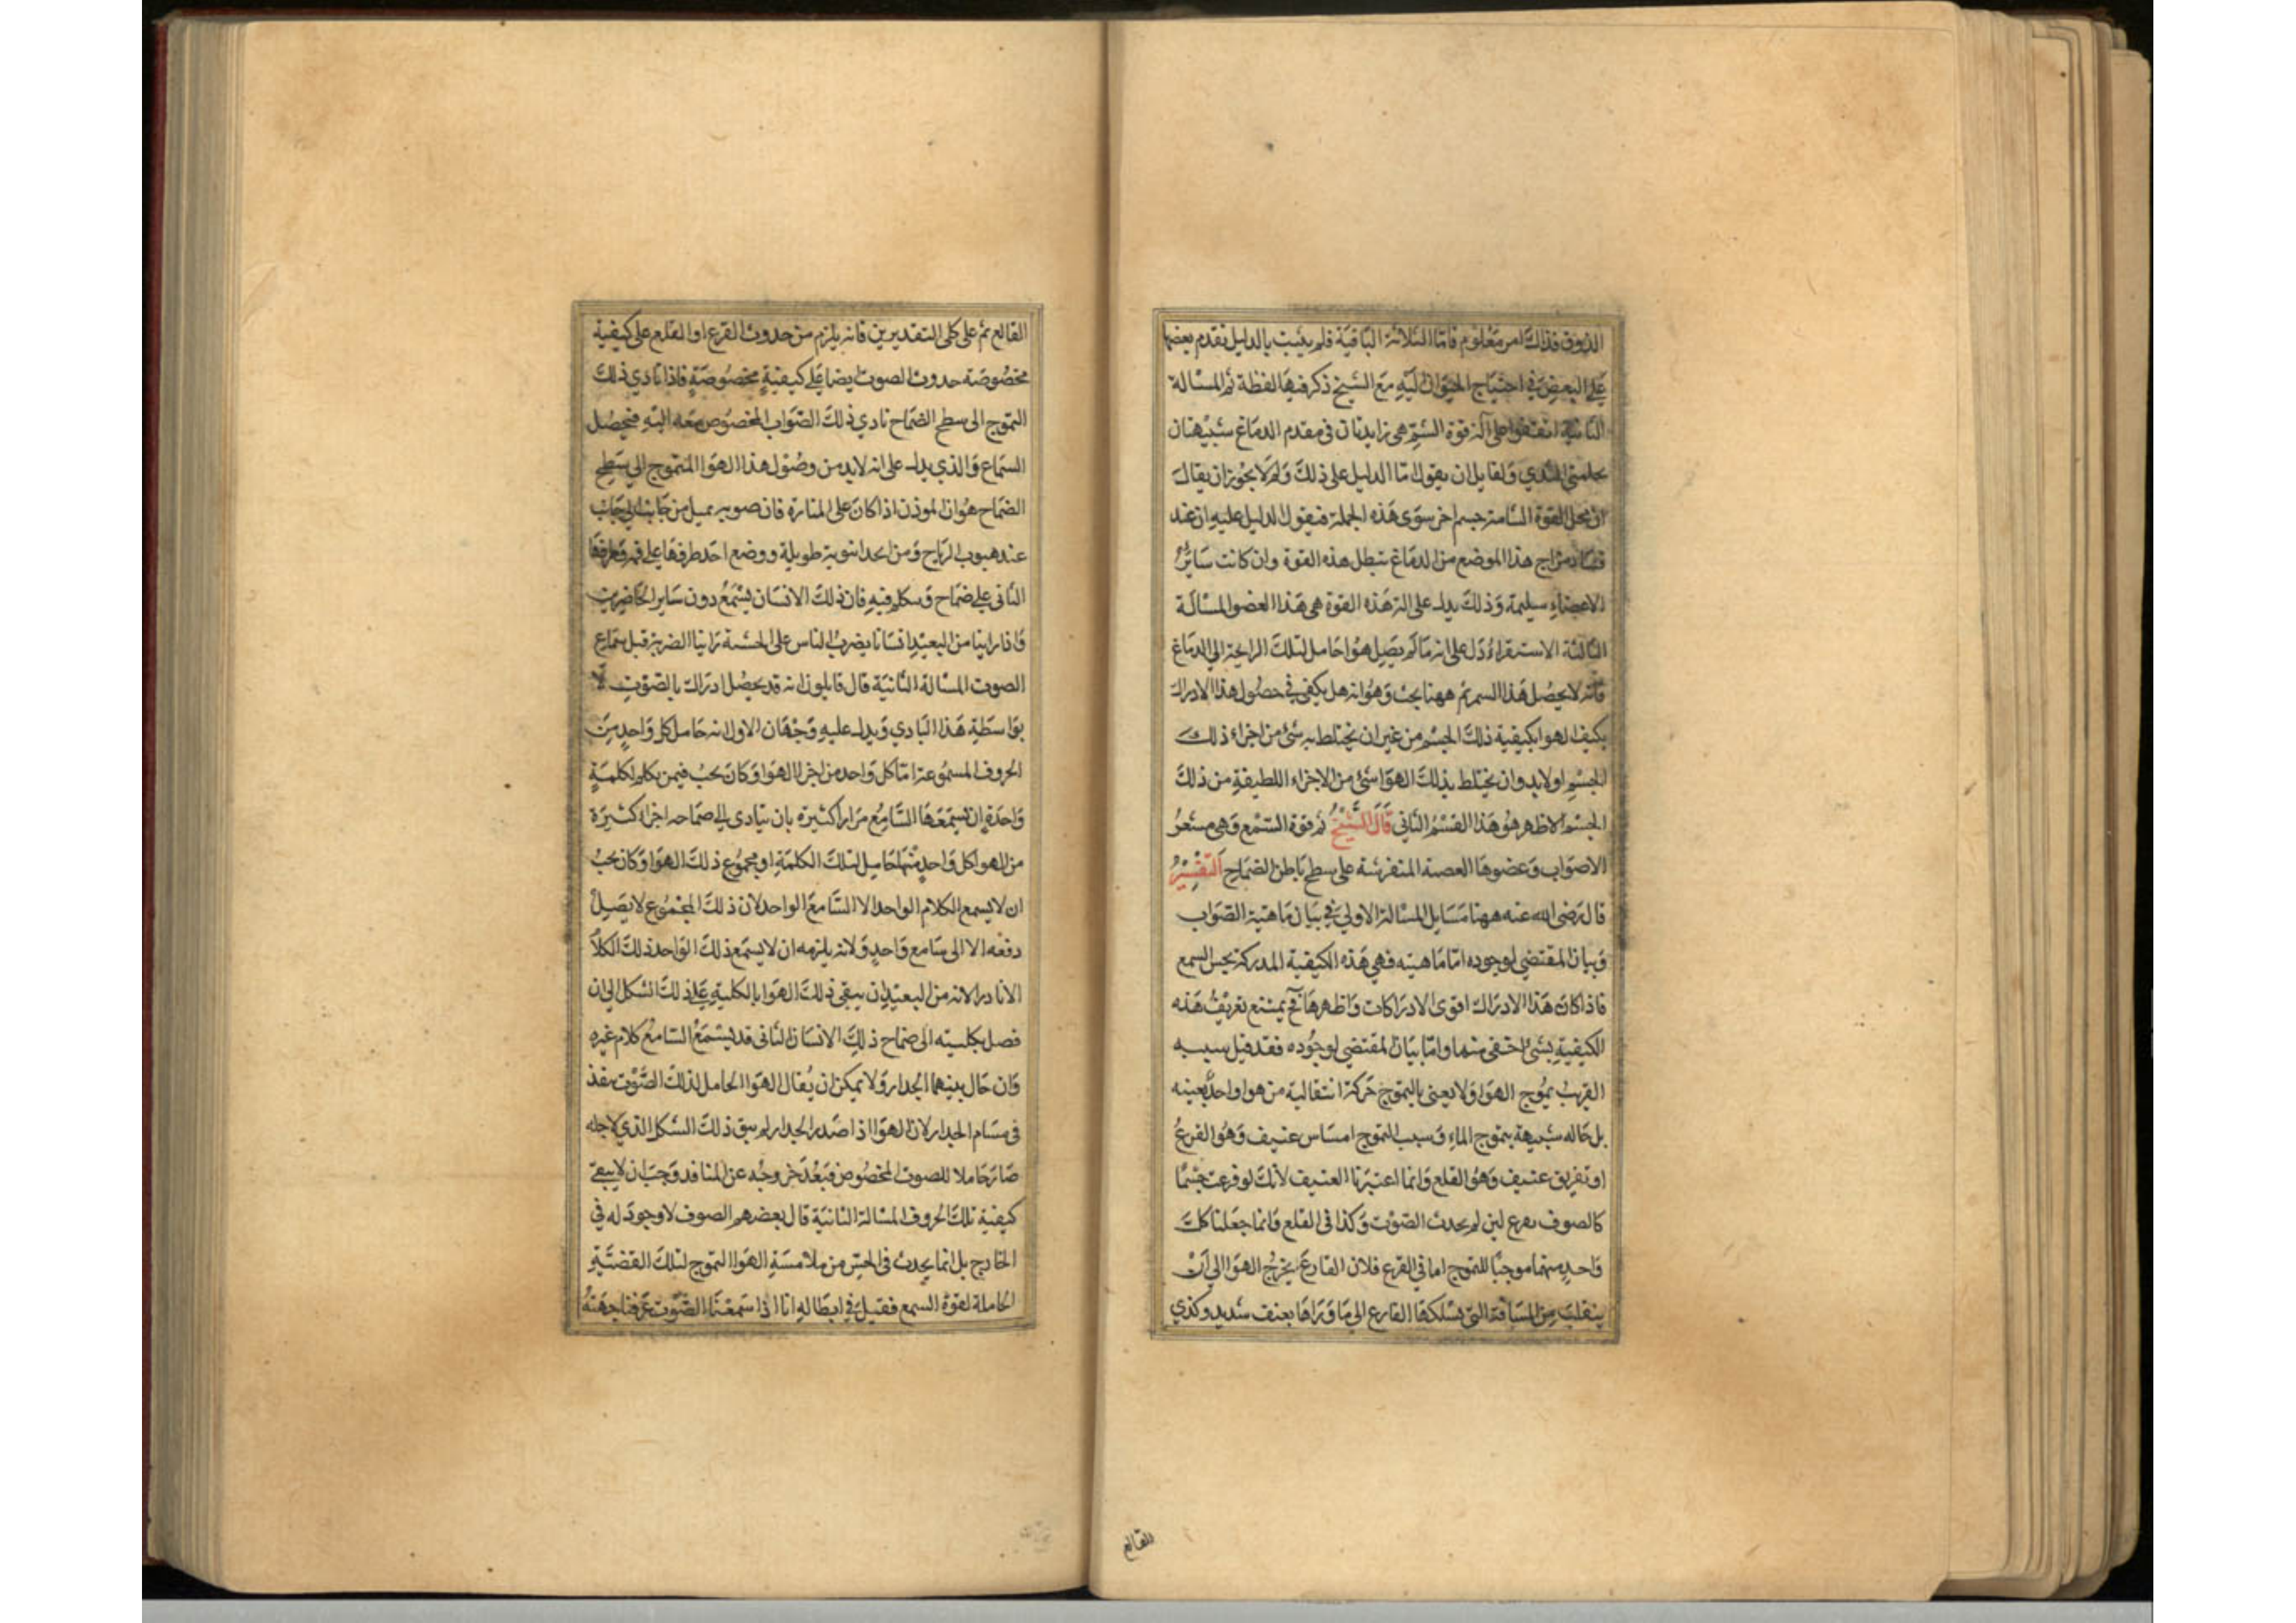 الذوق فذلك امر معلوم فامّا الثلاثة الباقية فلم يثبت بالدليل تقدم بعضها
على البعض في احتياج الحيوان اليه مع الشيخ ذكر فيها لفظة ثم المسالة
الثانية اتفقوا على آلة قوة الشم هي زايدتان في مقدم الدماغ شبيهتان
بحلمتي الثدي ولقايل ان يقول اما الدليل على ذلك ولم لا يجوز ان يقال
ان محل القوة الشامة جسم اخر سوى هذه الجملة فيقول الدليل عليه ان عند
فساد مزاج هذا الموضع من الدماغ تبطل هذه القوة وان كانت ساير
الاعضاء سليمة وذلك يدل على الة هذه القوة هي هذا العضو المسالة
الثالثة الاستقراء دل على انه ما لم يصل هوا حامل لتلك الرايحة الى الدماغ
فانه لا يحصل هذا السم ثم ههنا بحث وهو انه هل يكفي في حصول هذا الادراك
بكيف الهوا بكيفية ذلك الجسم من غير ان يختلط به شئ من اجزاء ذلك
الجسم او لا بد وان يختلط بذلك الهوا شئ من الاجزاء اللطيفة من ذلك
الجسم الاظهر هو هذا القسم الثاني قال الشيخ ثم قوة السمع وهي مشعر
الاصوات وعضوها العصبة المتفرشة على سطح باطن الصماخ التفسير
قال رضى الله عنه ههنا مسايل المسالة الاولى في بيان ماهية الصوات
وبيان المقتضى لوجوده اما ماهيته فهي هذه الكيفية المدركة بحس السمع
فاذا كان هذا الادراك اقوى الادراكات واظهرها فح يمتنع تعريف هذه
الكيفية بشئ اخفى منها واما بيان المقتضى لوجوده فقد قيل سببه
القريب تموج الهوا ولا يعنى بالتموج حركة انتقالية من هوا واحد بعينه
بل حاله شبيهة بتموج الماء وسبب التموج امساس عنيف وهو القرع
او تفريق عنيف وهو القلع وانما اعتبرنا العنيف لانك لو قرعت جسما
كالصوف بقرع لين لم يحدث الصوت وكذا في القلع وانما جعلنا كل
واحد منهما موجبا للتموج اما في القرع فلان القارع يخرج الهوا الى ان
ينقلب من المسافة التي يسلكها القارع الى ما وراها بعنف شديد وكذي
القالع
القالع ثم على كلى التقديرين فانه يلزم من حدوث القرع او القلع على كيفية
مخصوصة حدوث الصوت ايضا على كيفية مخصوصة فاذا تادي ذلك
التموج الى سطح الصماخ تادي ذلك الصوات المخصوص معه اليه فيحصل
السماع والذي يدل على انه لا بد من وصول هذا الهوا المتموج الى سطح
الصماخ هو ان الموذن اذا كان على المنارة فان صوته يميل من جانب الى جانب
عند هبوب الرياح ومن اتخذ انبوبة طويلة ووضع احد طرفها على فمه وطرفها
الثاني على صماخ وتكلم فيه فان ذلك الانسان يسمع دون ساير الحاضرين
واذا راينا من البعيد انسانا يضرب الناس على الخشبة راينا الضربة قبل سماع
الصوت المسالة الثانية قال قايلون انه قد يحصل ادراك بالصوت لا
بواسطة هذا البادي ويدل عليه وجهان الاول انه حامل كل واحد من
الحروف المسموعة اما كل واحد من اجزا الهوا وكان يجب فيمن يكلم لكلمة
واحدة ان يسمعها السامع مرارا كثيرة بان يتادى الى صماخه اجزاء كثيرة
من الهوا كل واحد منها حامل لتلك الكلمة او مجموع ذلك الهوا وكان يجب
ان لا يسمع الكلام الواحد الا السامع الواحد لان ذلك المجموع لا يصل
دفعه الا الى سامع واحد ولانه يلزمه ان لا يسمع ذلك الواحد ذلك الكلا
الا نادرا لانه من البعيد ان يبقى ذلك الهوا بالكلية على ذلك الشكل الى ان
فصل بكليته الى صماخ ذلك الانسان الثاني قد يستمع السامع كلام غيره
وان حال بينهما الجدار ولا يمكن ان يقال الهوا الحامل لذلك الصوت ينفذ
في مسام الجدار لان الهوا اذا صدم الجدار لم يبق ذلك الشكل الذي لاجله
صار حاملا للصوت المخصوص فبعد خروجه عن المنافد وجب ان لا يبقى
كيفية تلك الحروف المسالة الثانية قال بعضهم الصوف لا وجود له في
الخارج بل انما يحدث في الحس من ملامسة الهوا التموج لتلك القضية
الحاملة لقوة السمع فقيل في ابطاله انا اذا سمعنا الصوت عرفنا جهته